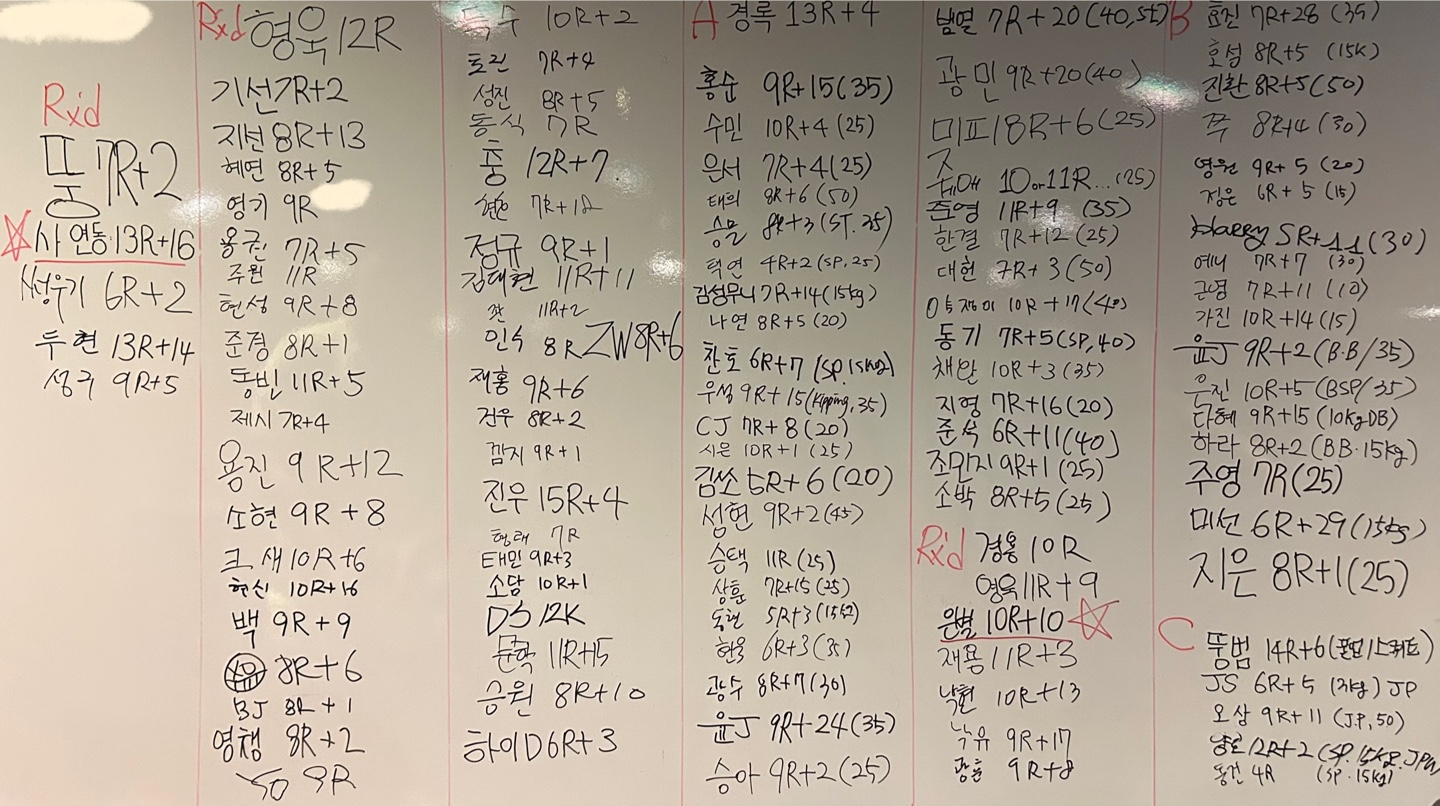 Rxd
뚱 7R+2
사 연동 13R+16
6R+2
두현 13R+14
성규 9R+5
Rxd 형욱 12R
기선 7R+2
지현 8R+13
혜연 8R+5
영기 9R
용권 7R+5
주원 11R
현성 9R+8
준경 8R+1
동빈 11R+5
제시 7R+4
용진 9R+12
소현 9R+8
크새 10R+6
현신 10R+16
백 9R+9
8R+6
BJ 8R+1
영챔 8R+2
YO 9R
특수 10R+2
토린 7R+4
성진 8R+5
동식 7R
홍 12R+7
7R+12
정규 9R+1
김대현 11R+11
11R+2
인수 8R ZW 8R+6
재홍 9R+6
건우 8R+2
깜지 9R+1
진우 15R+4
형래 7R
태민 9R+3
소담 10R+1
DS 12R
문학 11R+15
승원 8R+10
하이D 6R+3
A 경록 13R+4
홍순 9R+15(35)
수민 10R+4(25)
은서 7R+4(25)
태의 8R+6(50)
승물 8R+3(ST.35)
택연 4R+2(SP,25)
김성무니 7R+14(15kg)
나연 8R+5(20)
찬호 6R+7(SP.15kg)
우성 9R+15(kipping,35)
CJ 7R+8(20)
시은 10R+1(25)
김쏘 5R+6(20)
섬현 9R+2(45)
승택 11R(25)
상훈 7R+15(25)
동현 5R+3(15kg)
현욱 6R+3(35)
광수 8R+7(30)
윤J 9R+24(35)
승아 9R+2(25)
범열 7R+20(40,ST)
광민 9R+20(40)
미피 18R+6(25)
10 or 11R...(25)
준영 11R+9(35)
한결 7R+12(25)
대헌 7R+3(50)
10R+17(40)
동기 7R+5(SP,40)
채완 10R+3(35)
지영 7R+16(20)
준석 6R+11(40)
조민지 9R+1(25)
소박 8R+5(25)
Rx'd 경용 10R
영욱 11R+9
은별 10R+10
재용 11R+3
낙현 10R+13
낙유 9R+17
광훈 9R+8
B 효진 7R+28(35)
호섭 8R+5(15K)
진환 8R+5(50)
쭈 8R+4(30)
영원 9R+5(20)
지은 6R+5(15)
Harry 5R+11(30)
예니 7R+7(30)
근영 7R+11(10)
가진 10R+14(15)
윤J 9R+2(B.B/35)
은진 10R+5(BSP/35)
다혜 9R+15(10kgDB)
하라 8R+2(BB.15kg)
주영 7R(25)
미선 6R+29(15kg)
지은 8R+1(25)
C 뚱범 14R+6
JS 6R+5(3kg)JP
오상 9R+11(J.P,50)
12R+2(SP.15kg.JPU
동건 4R(SP.15kg)